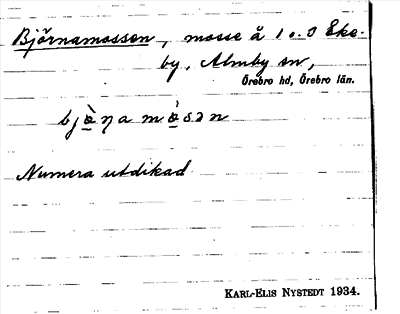 Björnamossen, mosse å 1 o. 3 Eke-
by, Almby sn,
Örebro hd, Örebro län.
Numera utdikad
KARL-ELIS NYSTEDT 1934.